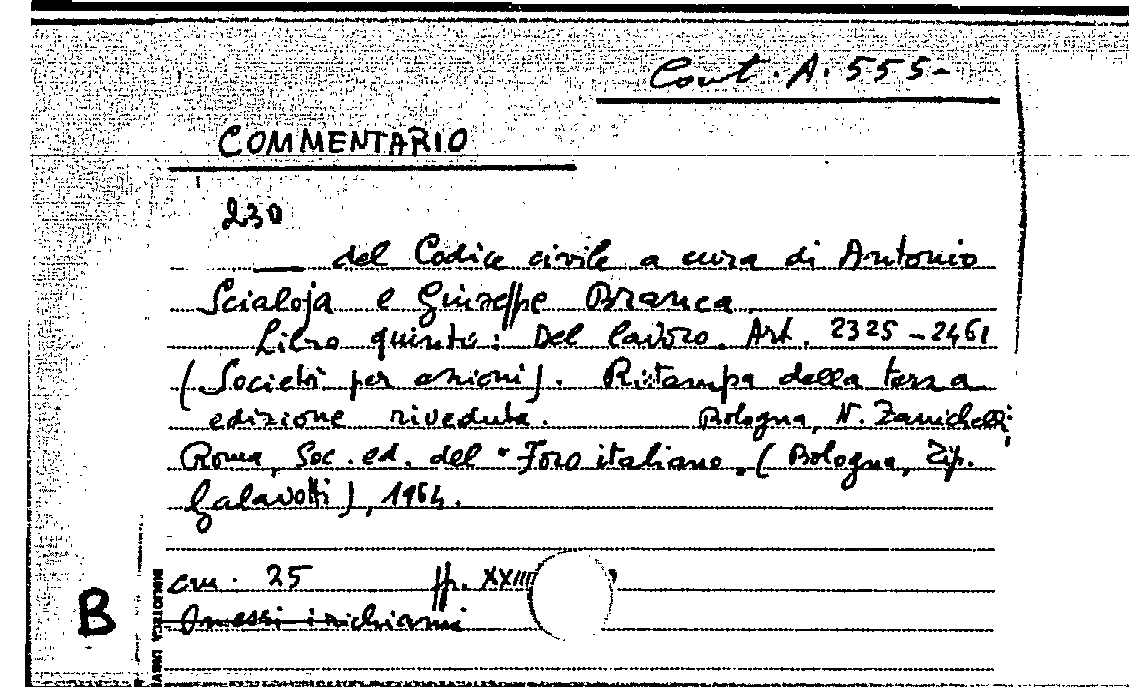 Cont. A. 555-
COMMENTARIO
230
___ del Codice civile a cura di Antonio
Scialoja e Giuseppe Branca.
Libro quinto: Del lavoro. Art. 2325-2461
(Società per azioni). Ristampa della terza
edizione riveduta. Bologna, N. Zanichelli;
Roma, Soc. ed. del "Foro italiano. (Bologna, Tip.
Galavotti), 1964.
cm. 25 pp. XXIII
Omessi i richiami
B
BIBLIOTECA